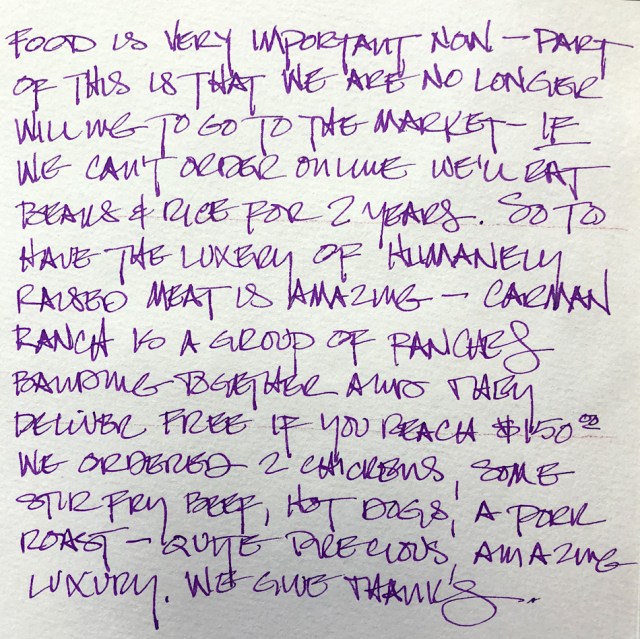 FOOD IS VERY IMPORTANT NOW - PART
OF THIS IS THAT WE ARE NO LONGER
WILLING TO GO TO THE MARKET - IF
WE CAN'T ORDER ONLINE WE'LL EAT
BEANS & RICE FOR 2 YEARS. SO TO
HAVE THE LUXERY OF HUMANELY
RAISED MEAT IS AMAZING - CARMAN
RANCH IS A GROUP OF RANCHES
BANDING TOGETHER AND THEY
DELIVER FREE IF YOU REACH $150.00
WE ORDERED 2 CHICKENS, SOME
STIR FRY BEEF, HOT DOGS, A PORK
ROAST - QUITE PRECIOUS, AMAZING
LUXURY. WE GIVE THANKS...